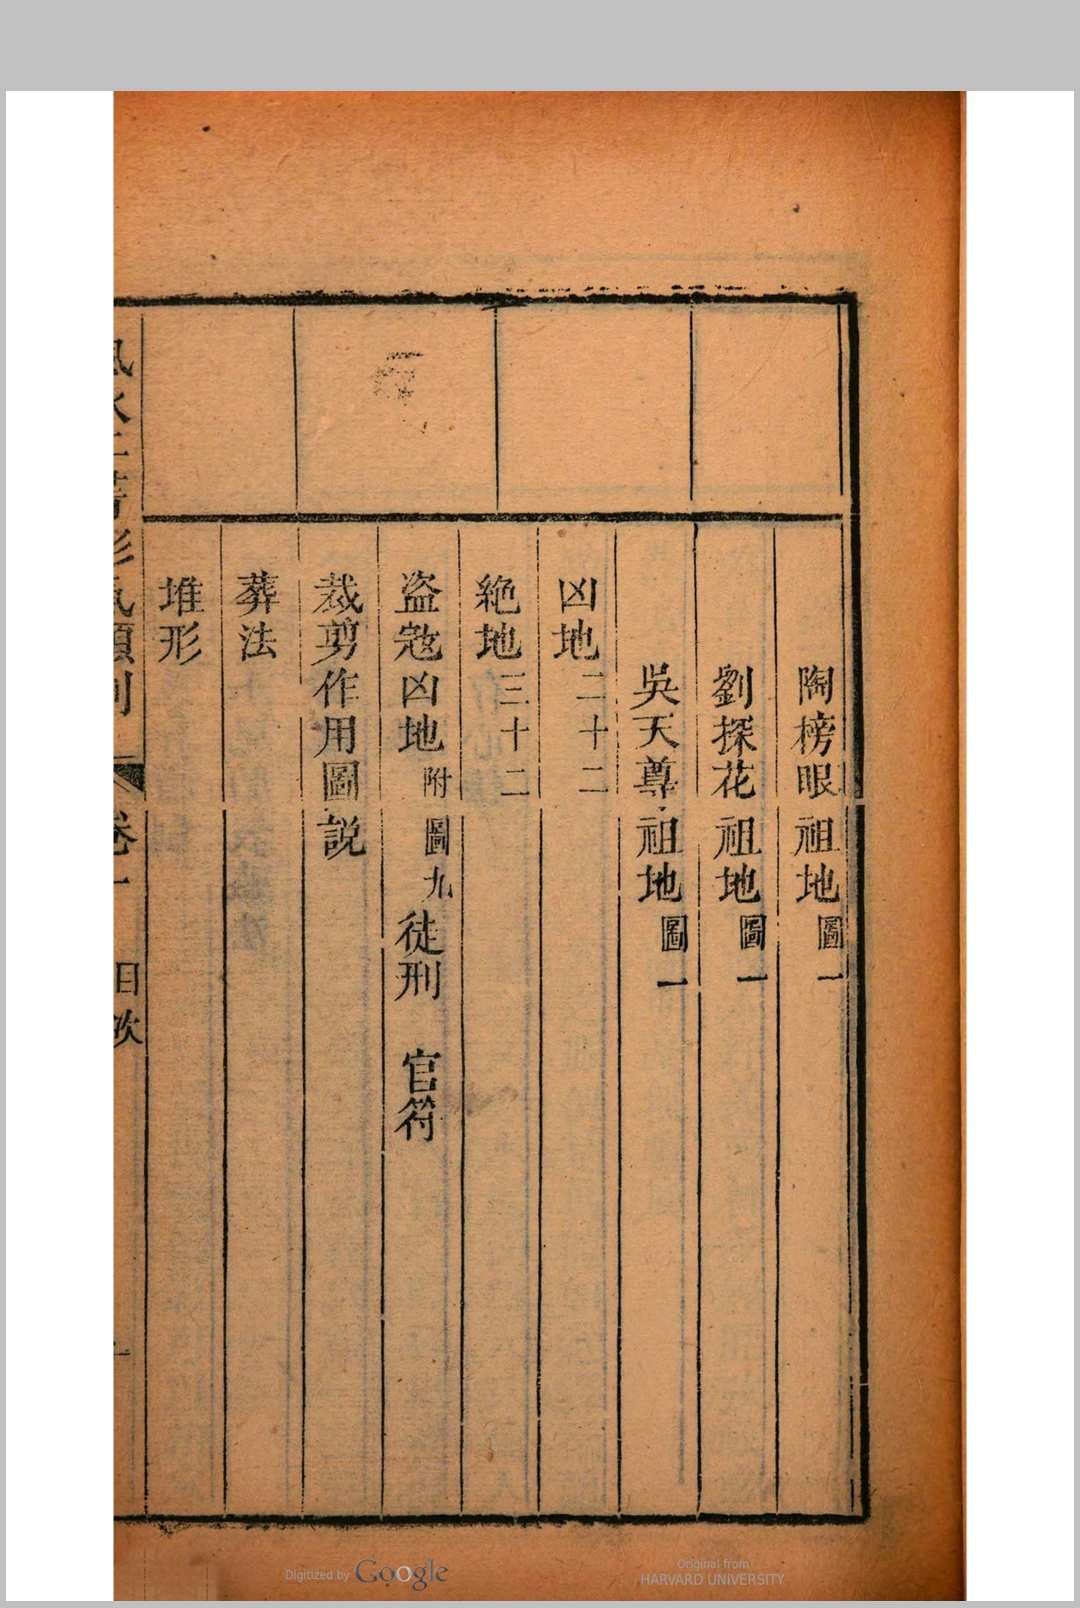 陶榜眼祖地圖一
劉探花祖地圖一
吳天尊祖地圖一
凶地二十二
絶地三十二
盗㓂凶地附圖九徒刑　官符
裁剪作用圖説
葬法
堆形
卷一　目次
Digitized by Google
Original from
HARVARD UNIVERSITY